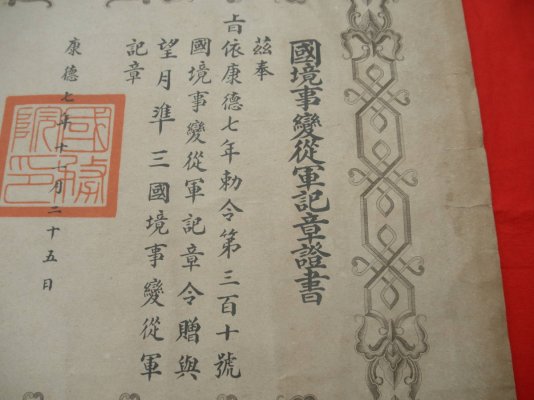 國境事變從軍記章證書
茲奉
旨依康德七年勅令第三百十號
國境事變從軍記章令贈與
望月準三國境事變從軍
記章
康德七年十一月二十五日
國務院印